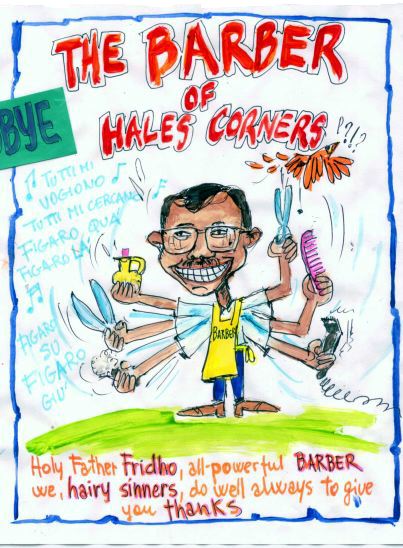 THE BARBER
OF
HALES CORNERS
!?!?
BYE
TUTTI MI
VOGIONO
TUTTI MI CERCANO
FIGARO QUA
FIGARO LA
FIGARO
SU
FIGARO
GIU'
BARBER
Holy Father Fridho, all-powerful BARBER
we, hairy sinners, do well always to give
you thanks